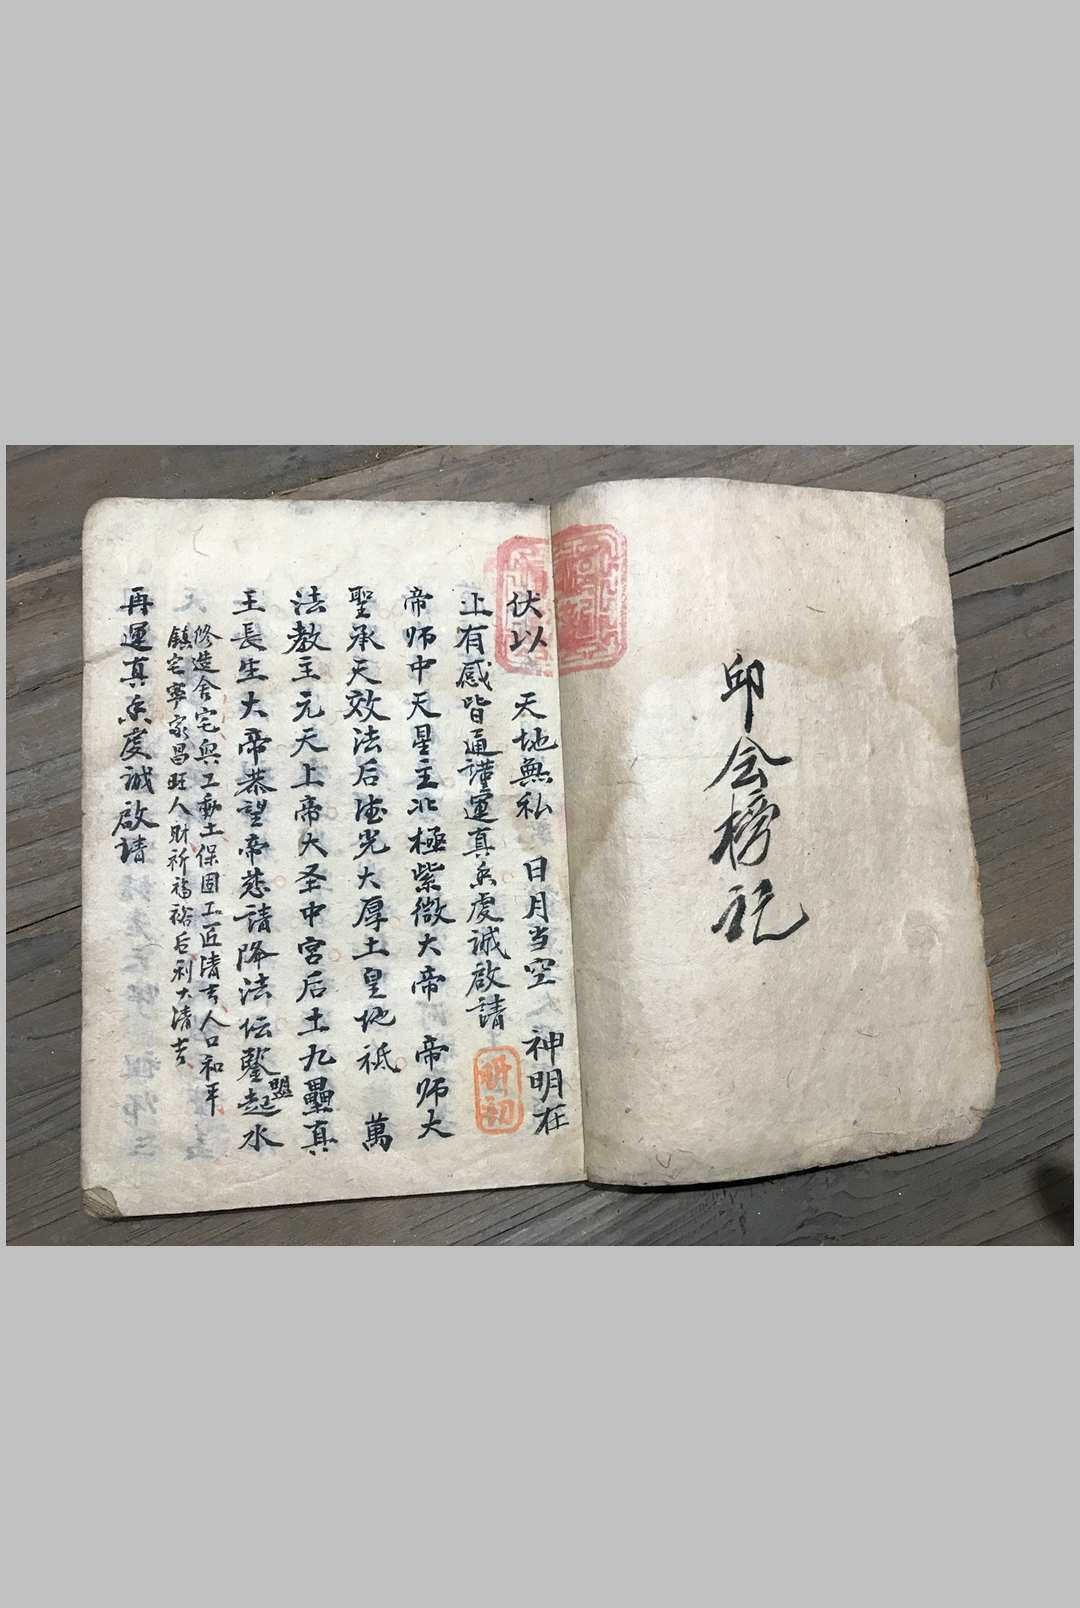 邱会榜记
伏以 天地無私 日月当空 神明在
上有感皆通謹運真香虔诚啟請
帝师中天星主北極紫微大帝 帝师大
聖承天效法后德光大厚土皇地祇 萬
法教主元天上帝大圣中宫后土九壘真
王長生大帝恭望帝慈請降法伝鑒盟起水
修造舍宅興工動土保固工匠清吉人口和平
鎮宅寧家昌旺人財祈福裕后利大清吉
再運真香虔诚啟请